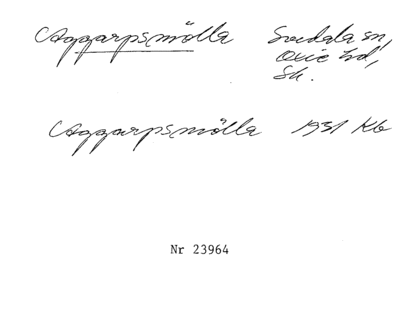 Aggarpsmölla Svedala sn,
Oxie hd,
Sk.
Aggarpsmölla 1931 Kb
Nr 23964